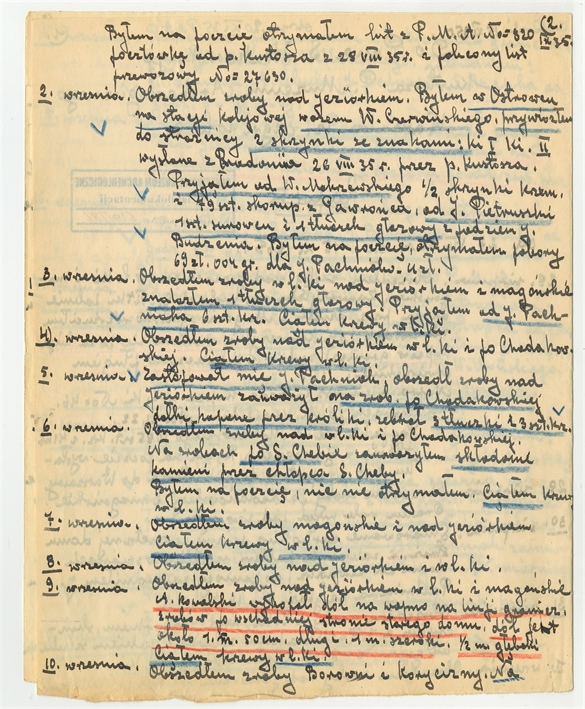 (2.
Byłem na poczcie otrzymałem list z P.M.A. No=820
pocztówkę od p. Kustosza z 28 VIII 35r. i polecony list
przewozowy No= 27630.
2. września. Obszedłem zroby nad jeziórkiem. Byłem w Ostrowcu
na stacji kolejowej wozem W. Czerwińskiego, przywiozłem
do strażnicy 2 skrzynki ze znakami: ki I ki. II
wysłane z Radomia 26 VIII 35 r. przez p. Kustosza.
Przyjąłem od W. Mokrzewskiego 1/2 skrzynki krzem.
i 79 szt. skorup. z Gawrońca, od J. Pietruszki
1 szt. surowca i 1 tłuczek głazowy z pod
Budzenia. Byłem na poczcie, otrzymałem
69 zł. 00 gr. dla J. Pachniak 4 zł.
3. września. Obszedłem zroby w l. ki nad jeziórkiem i magońskie
znalazłem 1 tłuczek głazowy. Przyjąłem od J. Pach-
niaka 6 szt. kr. Ciąłem krzewy w l. ki.
4. września. Obszedłem zroby nad jeziórkiem w l. ki i po Chodakow-
skiej. Ciąłem krzewy w l. ki
5. września Zastępował mię J. Pachniak obszedł zroby nad
jeziórkiem zauważył na zrob. po Chodakowskiej
dołki kopane przez króliki. zebrał 3 tłuczki i 3 szt. kr.
6. września. Obszedłem zroby nad w l. ki i po Chodakowskiej.
Na zrobach po S. Chebie zauważyłem składanie
kamieni przez chłopca S. Cheby.
Byłem na poczcie, nic nie otrzymałem. Ciąłem krzewy
w l. ki.
7. września. Obszedłem zroby magońskie i nad jeziórkiem
Ciąłem krzewy w l. ki
8. września. Obszedłem zroby nad jeziórkiem i w l. ki.
9. września. Obszedłem zroby nad jeziórkiem w l. ki i magońskie
A. Kowalski wykopał dół na wapno na linji granicz.
zrobów po wschodniej stronie starego domu. dół jest
około 1. m. 50 cm. długi. 1 m. szeroki. 1/2 m. głęboki
Ciąłem krzewy w l. ki.
10. września. Obszedłem zroby Borowni i Korycizny. Na